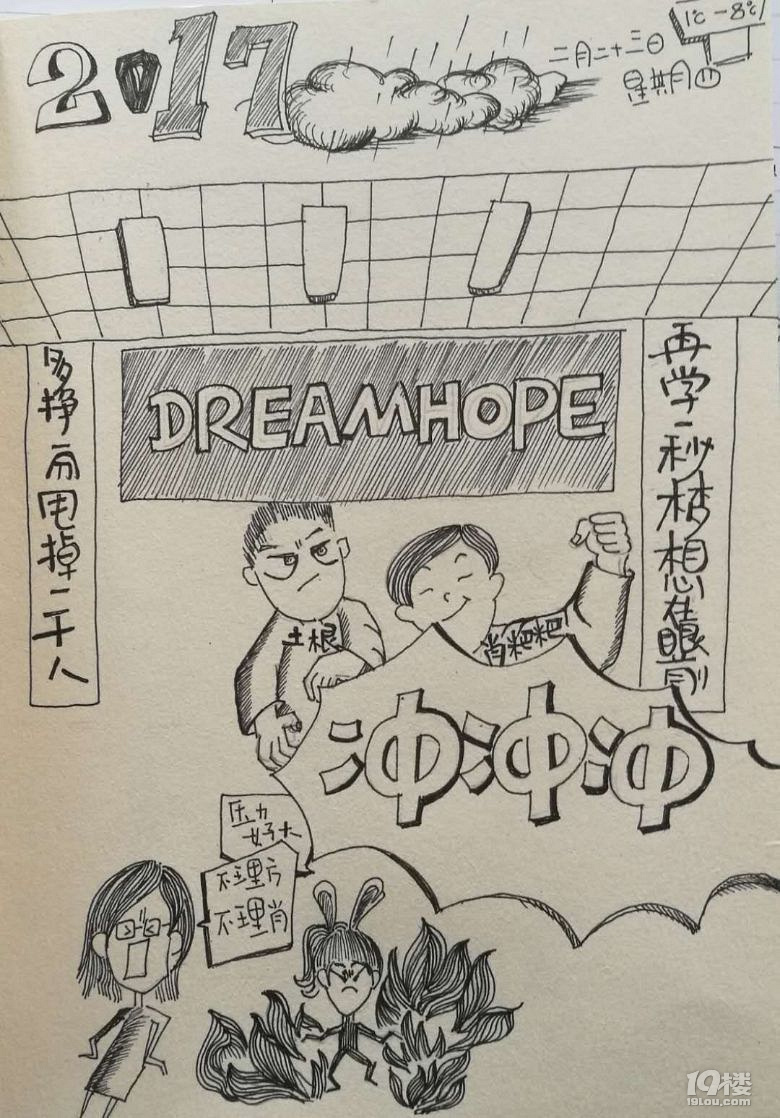 2017
二月二十三日
1℃-8℃
星期四
DREAMHOPE
再学一秒梦想在眼前
多挣一分甩掉一千人
土根
肖粑粑
冲冲冲
压力
好大
不理方
不理肖
19楼
19lou.com